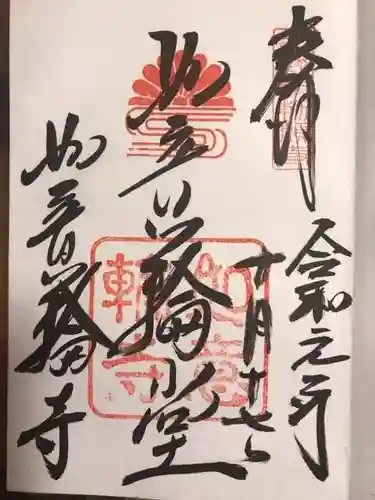 奉拝
令和元年
十月十七日
如意輪堂
如意輪寺
如意輪寺